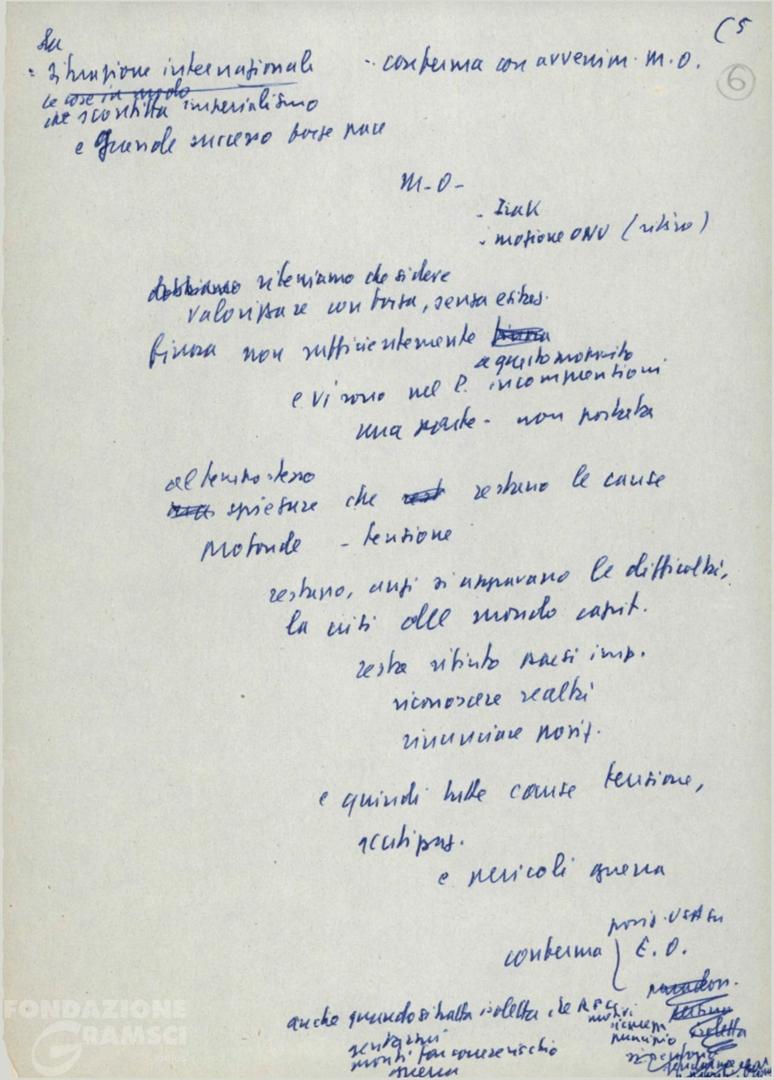 C5
6
Su
- situazione internazionale - conferma con avvenim. M.O.
le cose in modo
che sconfitta imperialismo
e grande successo forze pace
M-O-
- Irak
- mozione ONU (ritiro)
dobbiamo riteniamo che si deve
valorizzare con forza, senza esitaz.
finora non sufficientemente
a questo momento
e vi sono nel P. incomprensioni
una parte - non portata
al tempo stesso
spiegare che restano le cause
profonde - tensione
restano, anzi si aggravano le difficoltà,
la crisi del mondo capit.
resta rifiuto paesi imp.
riconoscere realtà
rinunciare posiz.
e quindi tutte cause tensione,
e pericoli guerra
posiz. USA su
conferma E.O.
anche quando si tratta isoletta che
isoletta
pronti far correre rischio
guerra
FONDAZIONE
GRAMSCI